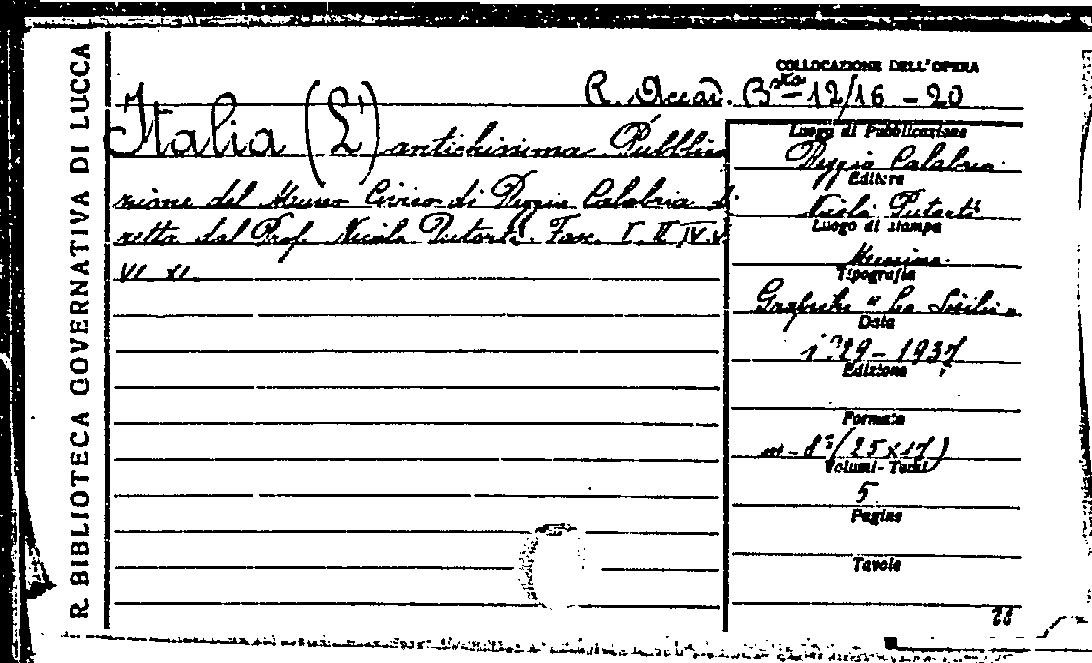 R. BIBLIOTECA GOVERNATIVA DI LUCCA
COLLOCAZIONE DELL'OPERA
R. Accad. 12/16 - 20
Italia (L') antichissima Pubblica
zione del Museo Civico di Reggio Calabria di
retto dal Prof. Nicola Putortì. Fasc. I. II IV. V
VI XI.
Luogo di Pubblicazione
Reggio Calabria
Editore
Nicola Putortì
Luogo di stampa
Messina
Tipografia
Grafiche "La Sicilia"
Data
1929 - 1937
Edizione
Formato
in-8º (25x17)
Volumi - Tomi
5
Pagine
Tavole